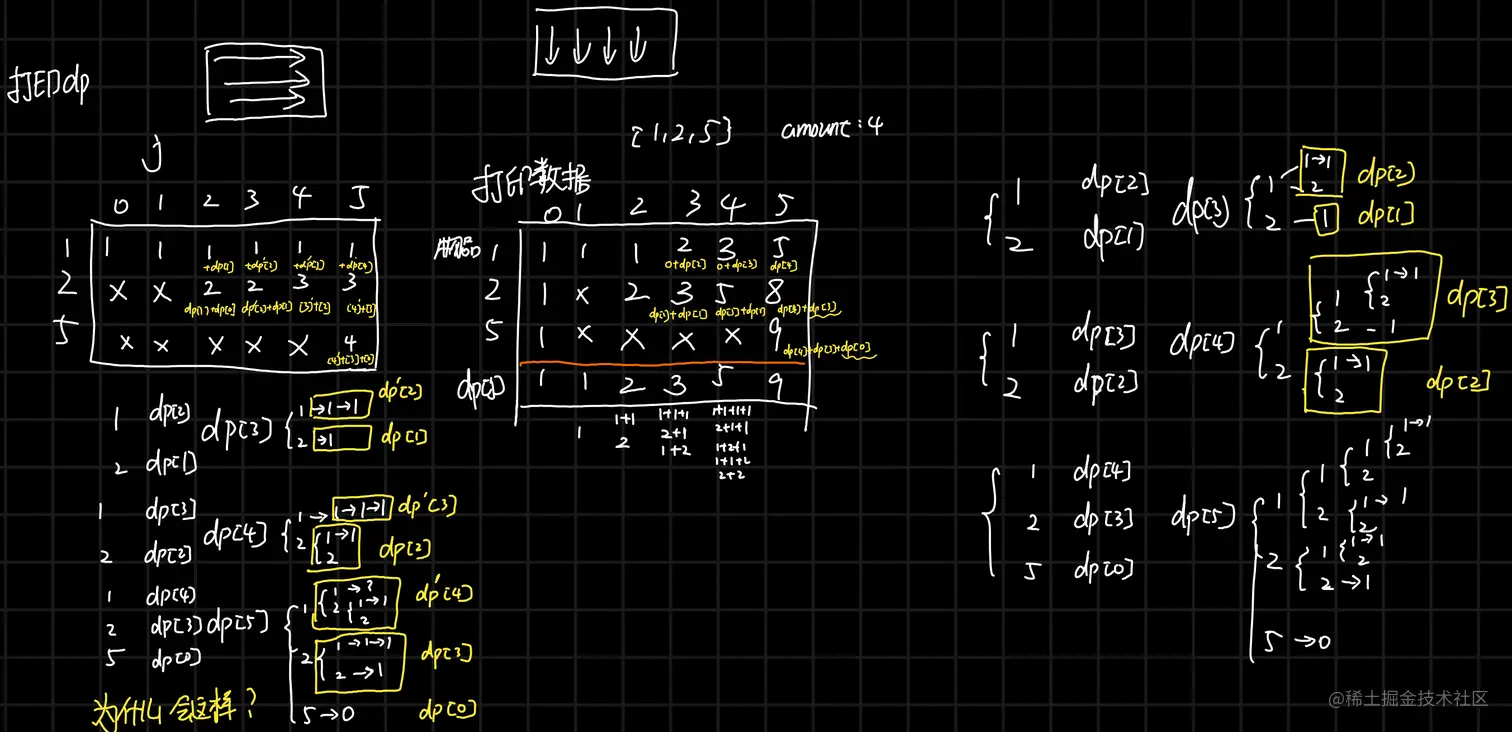 打印dp
[1,2,5] amount:4
j
0 1 2 3 4 5
1 1 1 1 1 1 1
+dp[1] +dp'[2] +dp'[3] +dp'[4]
2 x x 2 2 3 3
dp[1]+dp[0] dp'[2]+dp[1] [3]'+[2] [4]'+[3]
5 x x x x x 4
打印数据
0 1 2 3 4 5
1 1 1 1 2 3 5
0+dp[2] 0+dp[3] dp[4]
2 1 x 2 3 5 8
dp[2]+dp[1] dp[3]+dp[2] dp[4]+dp[3]
5 1 x x x x 9
dp[4]+dp[3]+dp[0]
dp[j] 1 1 2 3 5 9
1
1+1
2
1+1+1
2+1
1+2
1+1+1+1
2+1+1
1+2+1
1+1+2
2+2
1 dp[2]
2 dp[1]
dp[3]
1 →1→1 dp'[2]
2 →1 dp[1]
1 dp[3]
2 dp[2]
dp[4]
1→ 1→1→1 dp'[3]
2 1→1
2
dp[2]
1 dp[4]
2 dp[3]
5 dp[0]
dp[5]
1 1→?
2 1→1
2
dp'[4]
2 1→1→1
2→1
dp[3]
5→0 dp[0]
为什么会这样?
1 dp[2]
2 dp[1]
dp[3]
1 1→1
2
dp[2]
2 1 dp[1]
1 dp[3]
2 dp[2]
dp[4]
1 1 1→1
2
2-1
dp[3]
2 1→1
2
dp[2]
1 dp[4]
2 dp[3]
5 dp[0]
dp[5]
1 1 1 1→1
2
2
2 1→1
2
2 1 1→1
2
2→1
5→0
@稀土掘金技术社区